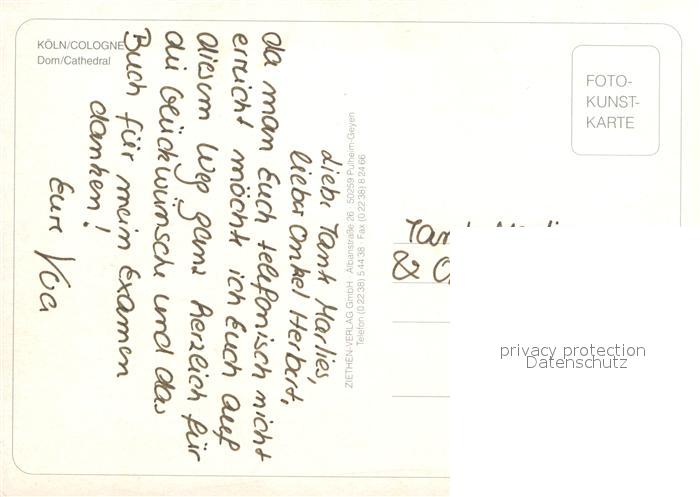 KÖLN/COLOGNE
Dom/Cathedral
FOTO-
KUNST-
KARTE
Liebe Tante Marlies,
lieber Onkel Herbert,
da man Euch telefonisch nicht
erreicht möchte ich Euch auf
diesem Weg ganz herzlich für
die Glückwünsche und das
Buch für mein Examen
danken!
Eure
ZIETHEN-VERLAG GmbH · Albanstraße 26 · 50259 Pulheim-Geyen
Telefon (0 22 38) 5 44 38 · Fax (0 22 38) 8 24 66
&
privacy protection
Datenschutz